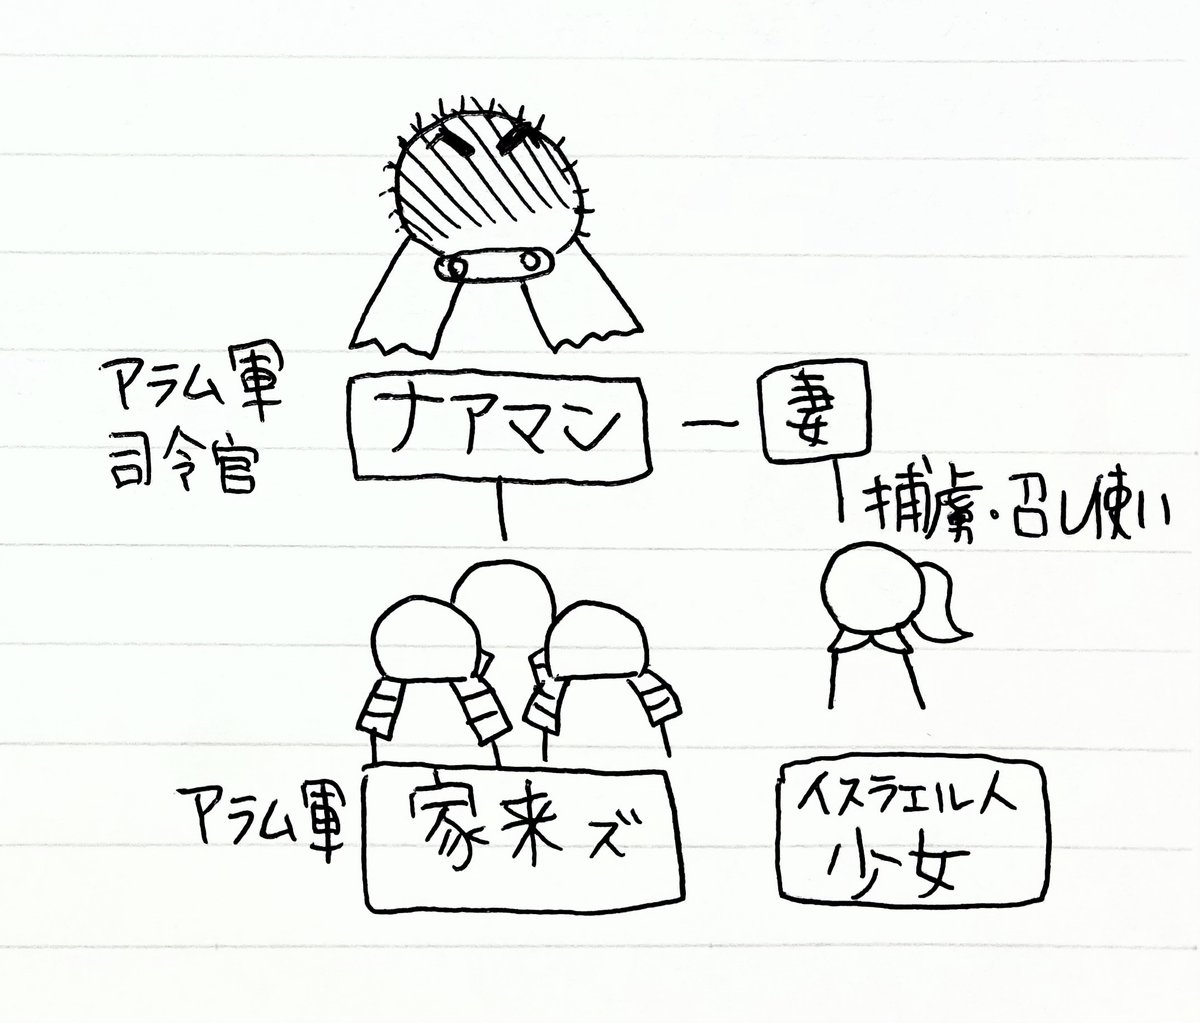 アラム軍
司令官
ナアマン
妻
捕虜・召し使い
アラム軍
家来ズ
イスラエル人
少女